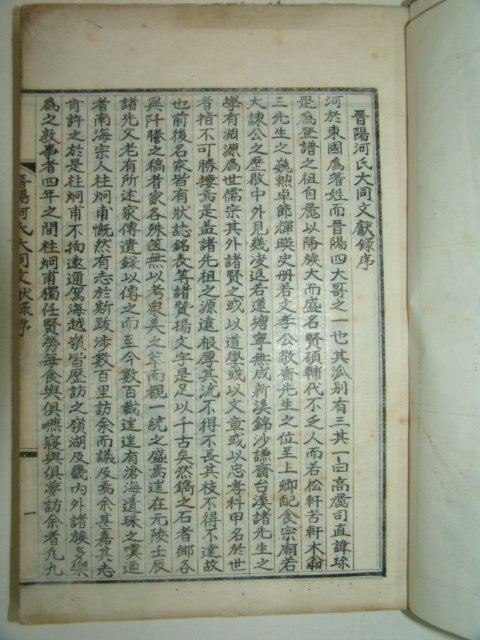 晉陽河氏大同文獻錄序
河於東國爲著姓而晉陽四大哥之一也其派別有三其一曰高麗司直諱珍
是爲登譜之祖自麗以降族大而盛名賢碩輔代不乏人而若松軒苦軒木翁
三先生之巍勲卓節輝暎史册若文孝公敬齋先生之位至上卿配食宗廟若
大諫公之歷敭中外見幾凌退若蓮塘寧無成新溪錦沙謙齋台溪諸先生之
學有淵源爲世儒宗其外諸賢之或以道學或以文章或以忠孝科甲名於世
者指不可勝摟焉是盖諸先祖之源遠根厚其流不得不長其枝不得不達故
也前後名家皆有狀誌銘表等諸贊揚文字是足以千古矣然鐫之石者鄉各
異阡謄之稿者家各殊篋無以考衆美之萃而觀一統之盛焉逹在元陵壬辰
諸先文老有所述家傳遺錄以傳之而至今數百載逹逹有滄海遺珠之嘆迺
者南海宗人柱炯甫慨然有志於斯跋涉數百里訪余而議及焉余亟嘉其志
肯許之於是柱炯甫不拘遠邇駕海越嶺皆歷訪之嶺湖及畿内外諸族多樂
爲之敦事者四年之間柱炯甫獨任賢勞每食與俱嚥寢與俱夢訪余者凡九
晋陽河氏大同文獻錄序
一